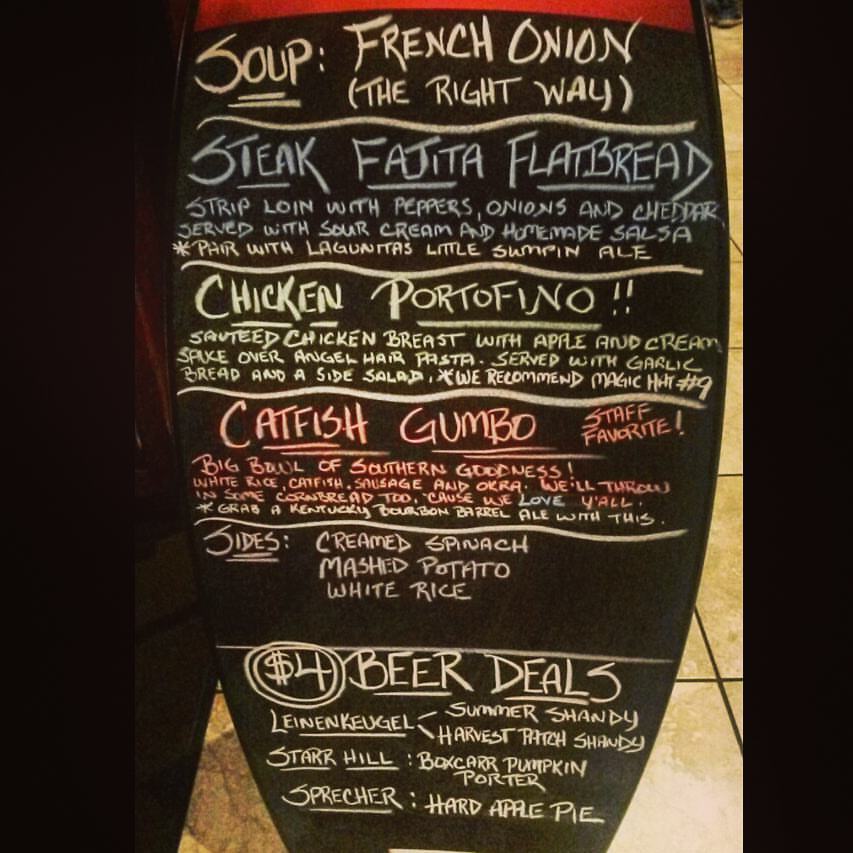 SOUP: FRENCH ONION
(THE RIGHT WAY)
STEAK FAJITA FLATBREAD
STRIP LOIN WITH PEPPERS, ONIONS AND CHEDDAR
SERVED WITH SOUR CREAM AND HOMEMADE SALSA
*PAIR WITH LAGUNITAS LITTLE SUMPIN ALE
CHICKEN PORTOFINO!!
SAUTEED CHICKEN BREAST WITH APPLE AND CREAM
SAUCE OVER ANGEL HAIR PASTA. SERVED WITH GARLIC
BREAD AND A SIDE SALAD. *WE RECOMMEND MAGIC HAT #9
CATFISH GUMBO STAFF
FAVORITE!
BIG BOWL OF SOUTHERN GOODNESS!
WHITE RICE, CATFISH, SAUSAGE AND OKRA. WE'LL THROW
IN SOME CORNBREAD TOO, 'CAUSE WE LOVE Y'ALL.
*GRAB A KENTUCKY BOURBON BARREL ALE WITH THIS.
SIDES: CREAMED SPINACH
MASHED POTATO
WHITE RICE
$4 BEER DEALS
LEINENKEUGEL < SUMMER SHANDY
HARVEST PATCH SHANDY
STARR HILL: BOXCARR PUMPKIN
PORTER
SPRECHER: HARD APPLE PIE